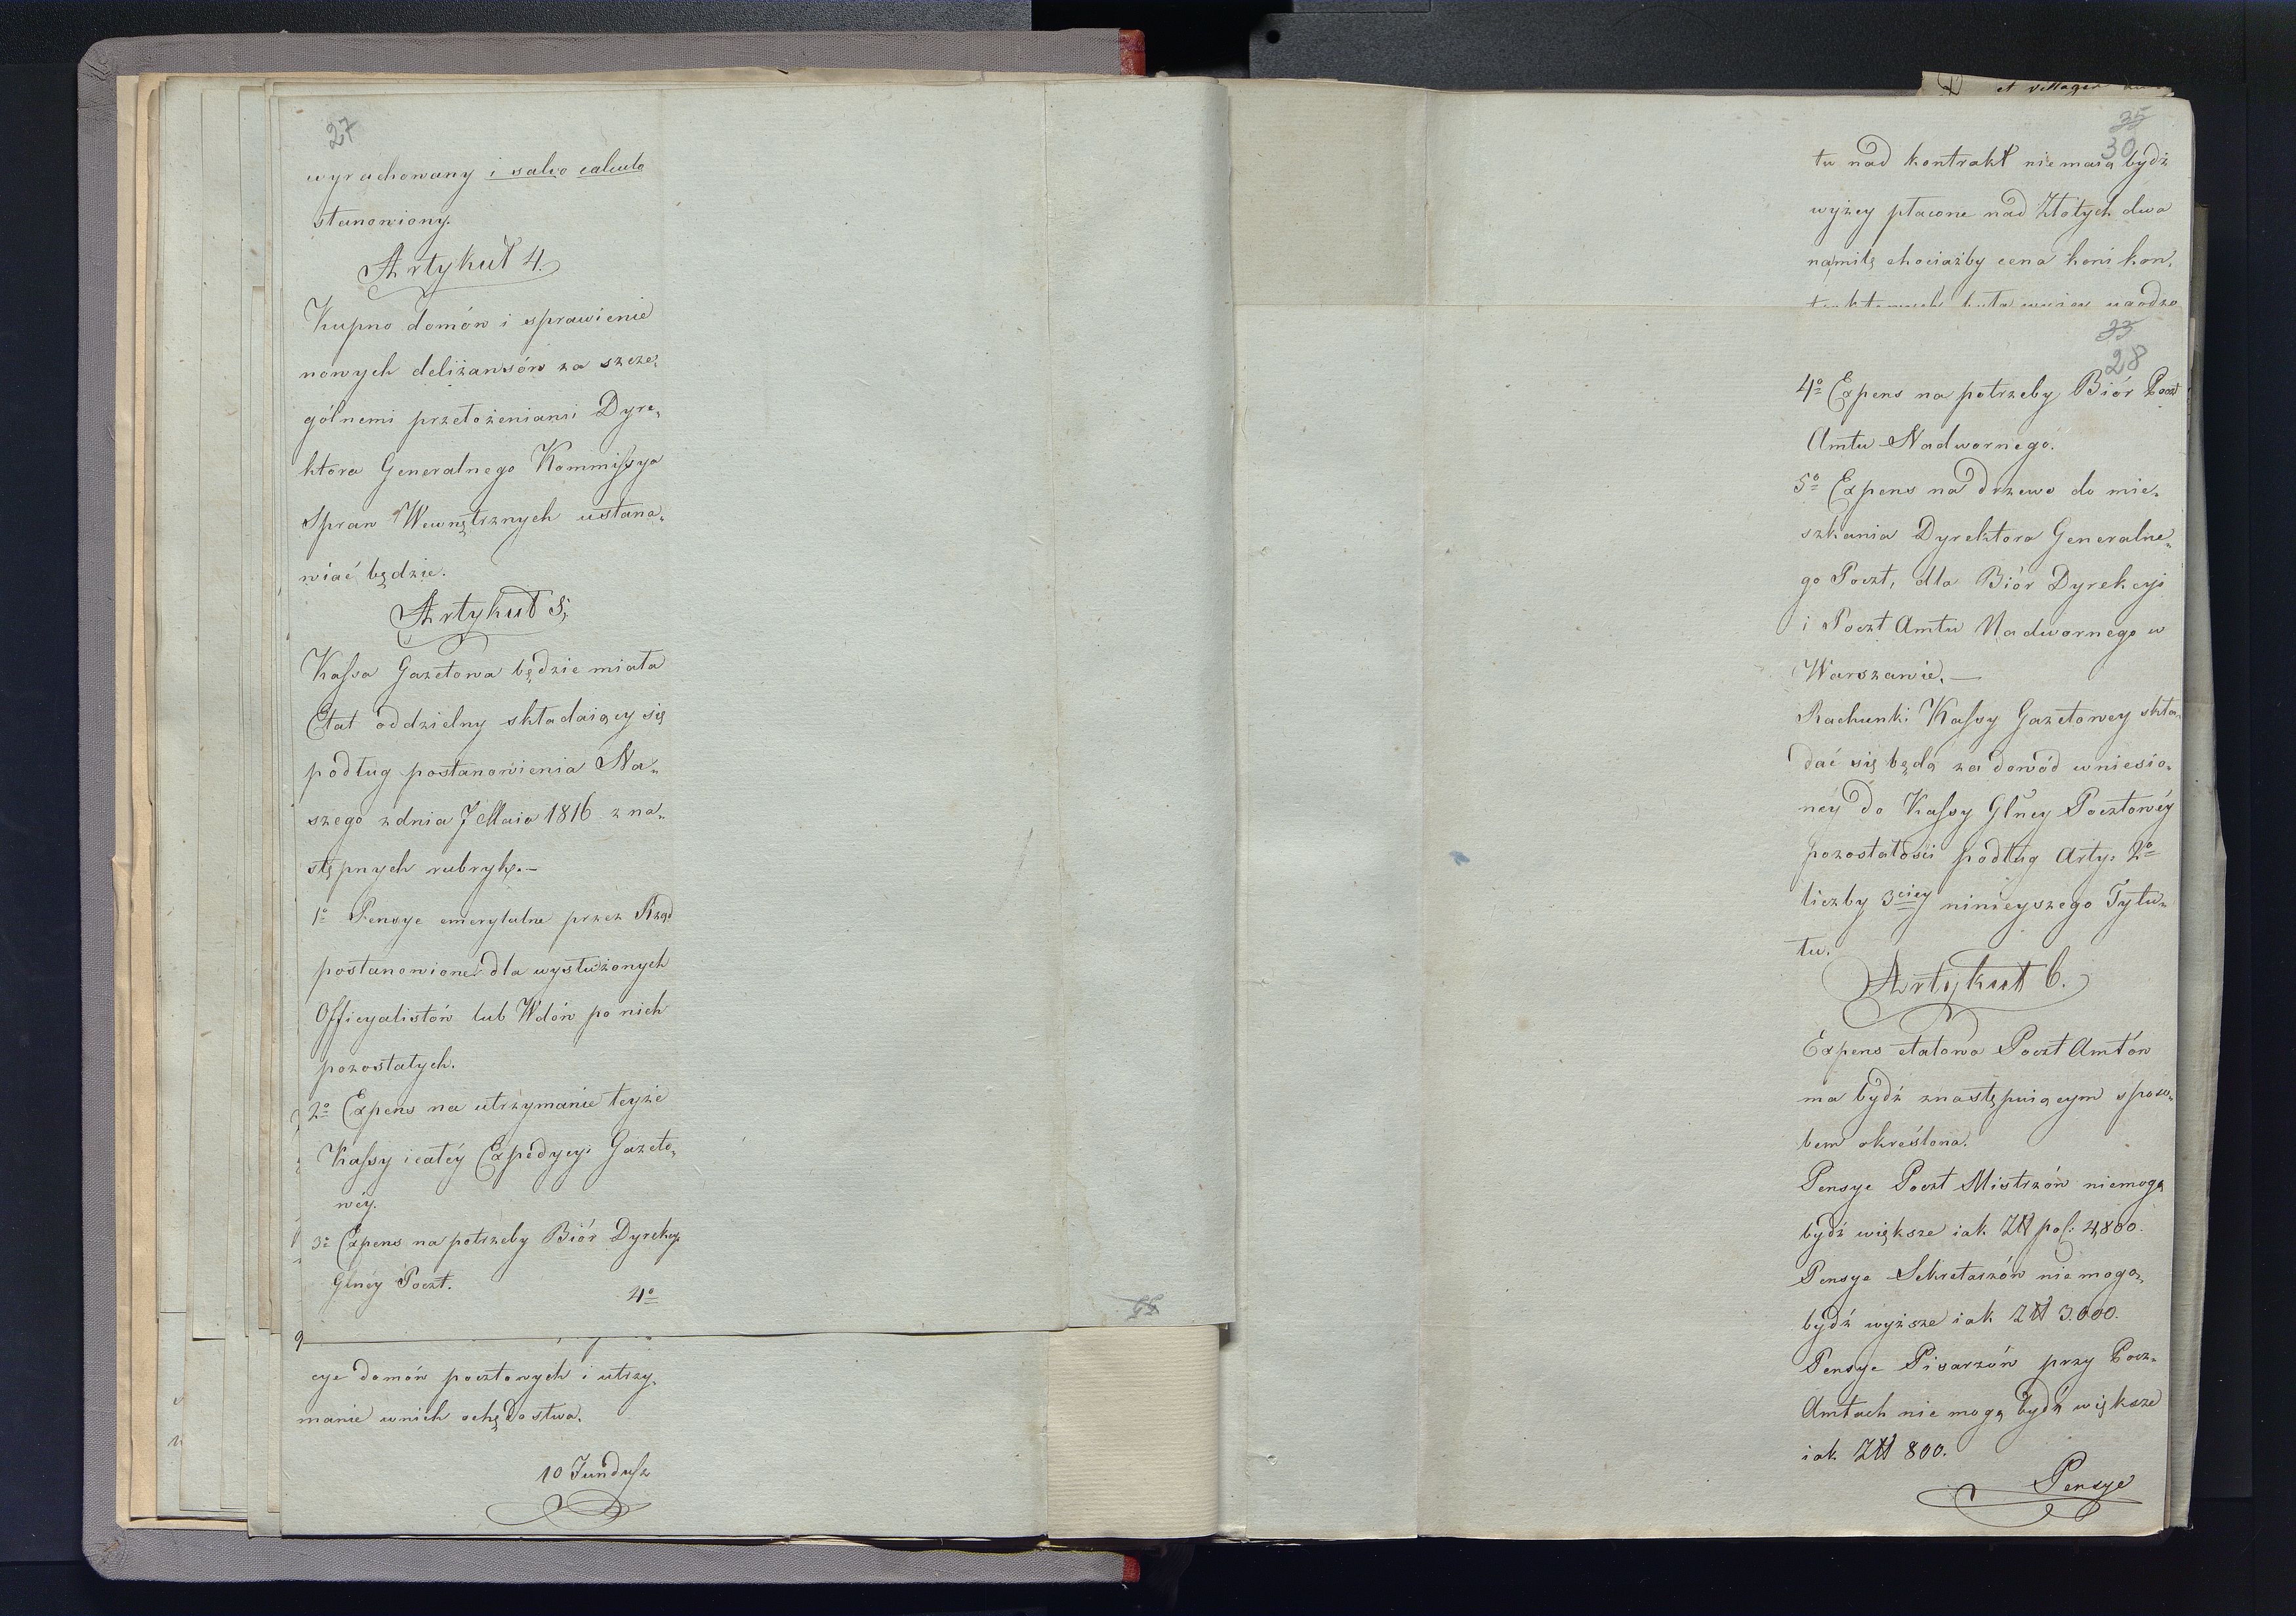 27
wyrachowany i salvo calculo
stanowiony.
Artykuł 4.
Kupno domów i sprawienie
nowych deliżansów za szcze„
gólnemi przełożeniami Dyre„
ktora Generalnego Kommissya
Spraw Wewnętrznych ustana„
wiać będzie.
Artykuł 5.
Kassa Gazetowa będzie miała
Etat oddzielny składaiący się
podług postanowienia Na„
szego z dnia 7 Maia 1816 z na„
stępnych rubryk.—
1º Pensye emerytalne przez Rząd
postanowione dla wysłużonych
Officyalistów lub Wdów po nich
pozostałych.
2º Expens na utrzymanie teyże
Kassy i całéy Expedycyi Gazeto„
wéy.
3º Expens na potrzeby Biór Dyrekcyi
Głney Poczt.
4º
cye domów pocztowych i utrzy„
manie w nich ochędostwa.
10 Fundusz
et villages
35
30
tu nad kontrakt nie maią bydź
wyżey płacone nad Złotych dwa
na milę chociażby cena koni kon„
33
28
4º Expens na potrzeby Biór Poczt
Amtu Nadwornego.
5º Expens na drzewo do mie„
szkania Dyrektora Generalne„
go Poczt, dla Biór Dyrekcyi
i Poczt Amtu Nadwornego w
Warszawie.—
Rachunki Kassy Gazetowey skła„
dać się będą za dowód wniesio„
néy do Kassy Głney Pocztowéy
pozostałości podług Arty: 2º
liczby 3ciey ninieyszego Tytu„
łu.
Artykuł 6.
Expens etatowa Poczt Amtów
ma bydź z następuiącym sposo„
bem określona.
Pensye Poczt Mistrzów niemogą
bydź większe iak Zł pol: 4,800.
Pensye Sekretarzów nie mogą„
bydź wyższe iak Zł 3.000.
Pensye Pisarzów przy Pocz„
Amtach nie mogą bydź większe
iak Zł 800.
Pensye